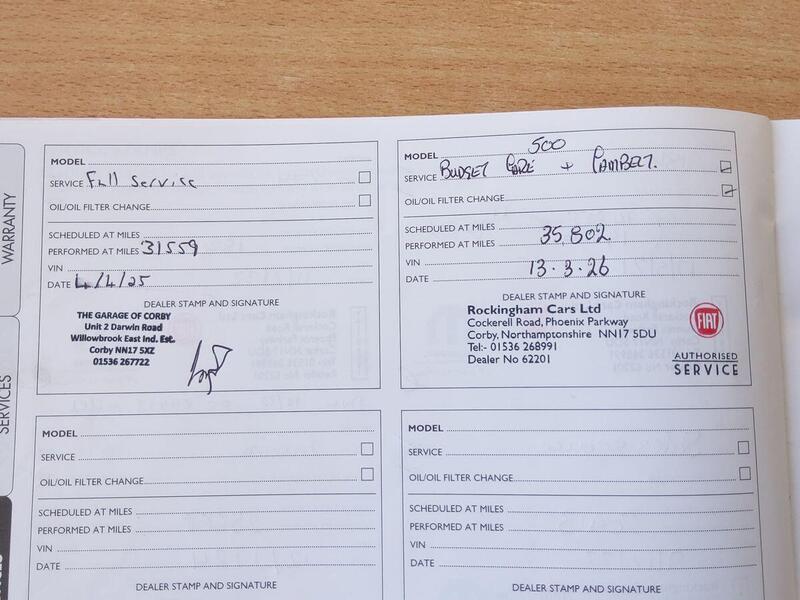 WARRANTY
SERVICES
MODEL
SERVICE Full Service
OIL/OIL FILTER CHANGE
SCHEDULED AT MILES
PERFORMED AT MILES 31559
VIN
DATE 4/4/25
DEALER STAMP AND SIGNATURE
THE GARAGE OF CORBY
Unit 2 Darwin Road
Willowbrook East Ind. Est.
Corby NN17 5XZ
01536 267722
MODEL 500
SERVICE BUDGET CARE + CAMBELT.
OIL/OIL FILTER CHANGE
SCHEDULED AT MILES
PERFORMED AT MILES 35,802
VIN
DATE 13.3.26
DEALER STAMP AND SIGNATURE
Rockingham Cars Ltd
Cockerell Road, Phoenix Parkway
Corby, Northamptonshire NN17 5DU
Tel:- 01536 268991
Dealer No 62201
FIAT
AUTHORISED
SERVICE
MODEL
SERVICE
OIL/OIL FILTER CHANGE
SCHEDULED AT MILES
PERFORMED AT MILES
VIN
DATE
DEALER STAMP AND SIGNATURE
MODEL
SERVICE
OIL/OIL FILTER CHANGE
SCHEDULED AT MILES
PERFORMED AT MILES
VIN
DATE
DEALER STAMP AND SIGNATURE